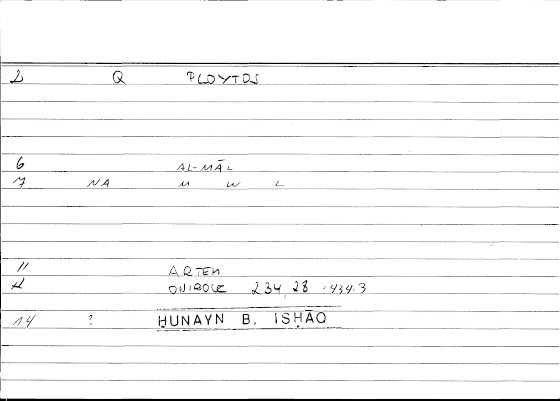 2 Q PLOYTOS
6 AL-MĀL
7 NA M W L
11 ARTEM
12 ONIROCR 234, 28 434.3
14 ? ḤUNAYN B. ISḤĀQ